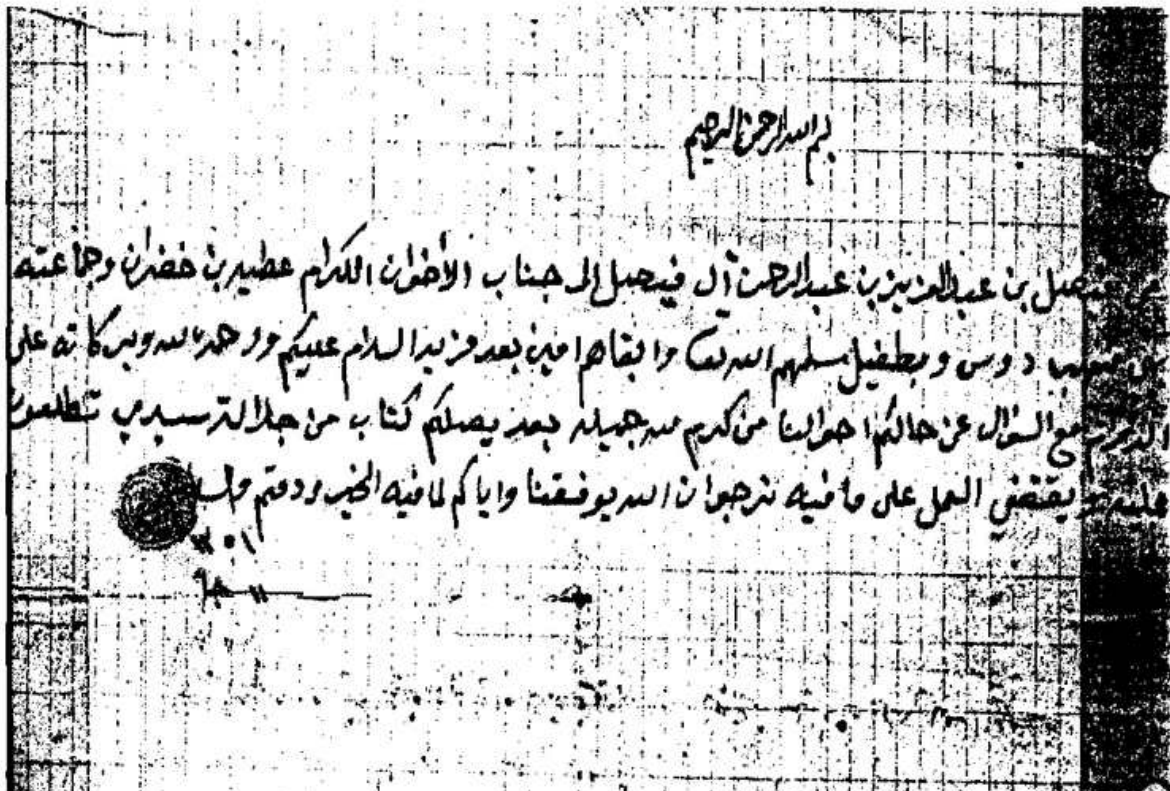 بسم الله الرحمن الرحيم
من فيصل بن عبدالعزيز بن عبدالرحمن آل فيصل إلى جناب الأخوان الكرام عطيه بن خضران وجماعته
دوس وبطفيل سلمهم الله تعا وابقاهم امين بعد مزيد السلام عليكم ورحمة الله وبركاته على
الدوام مع السؤال عن حالكم احوالنا من كرم الله جميله بعد يصلكم كتاب من جلالة سيدي تطلعون
عليه ويقتضي العمل على ما فيه نرجوا ان الله يوفقنا واياكم لما فيه الخير ودمتم والسلام